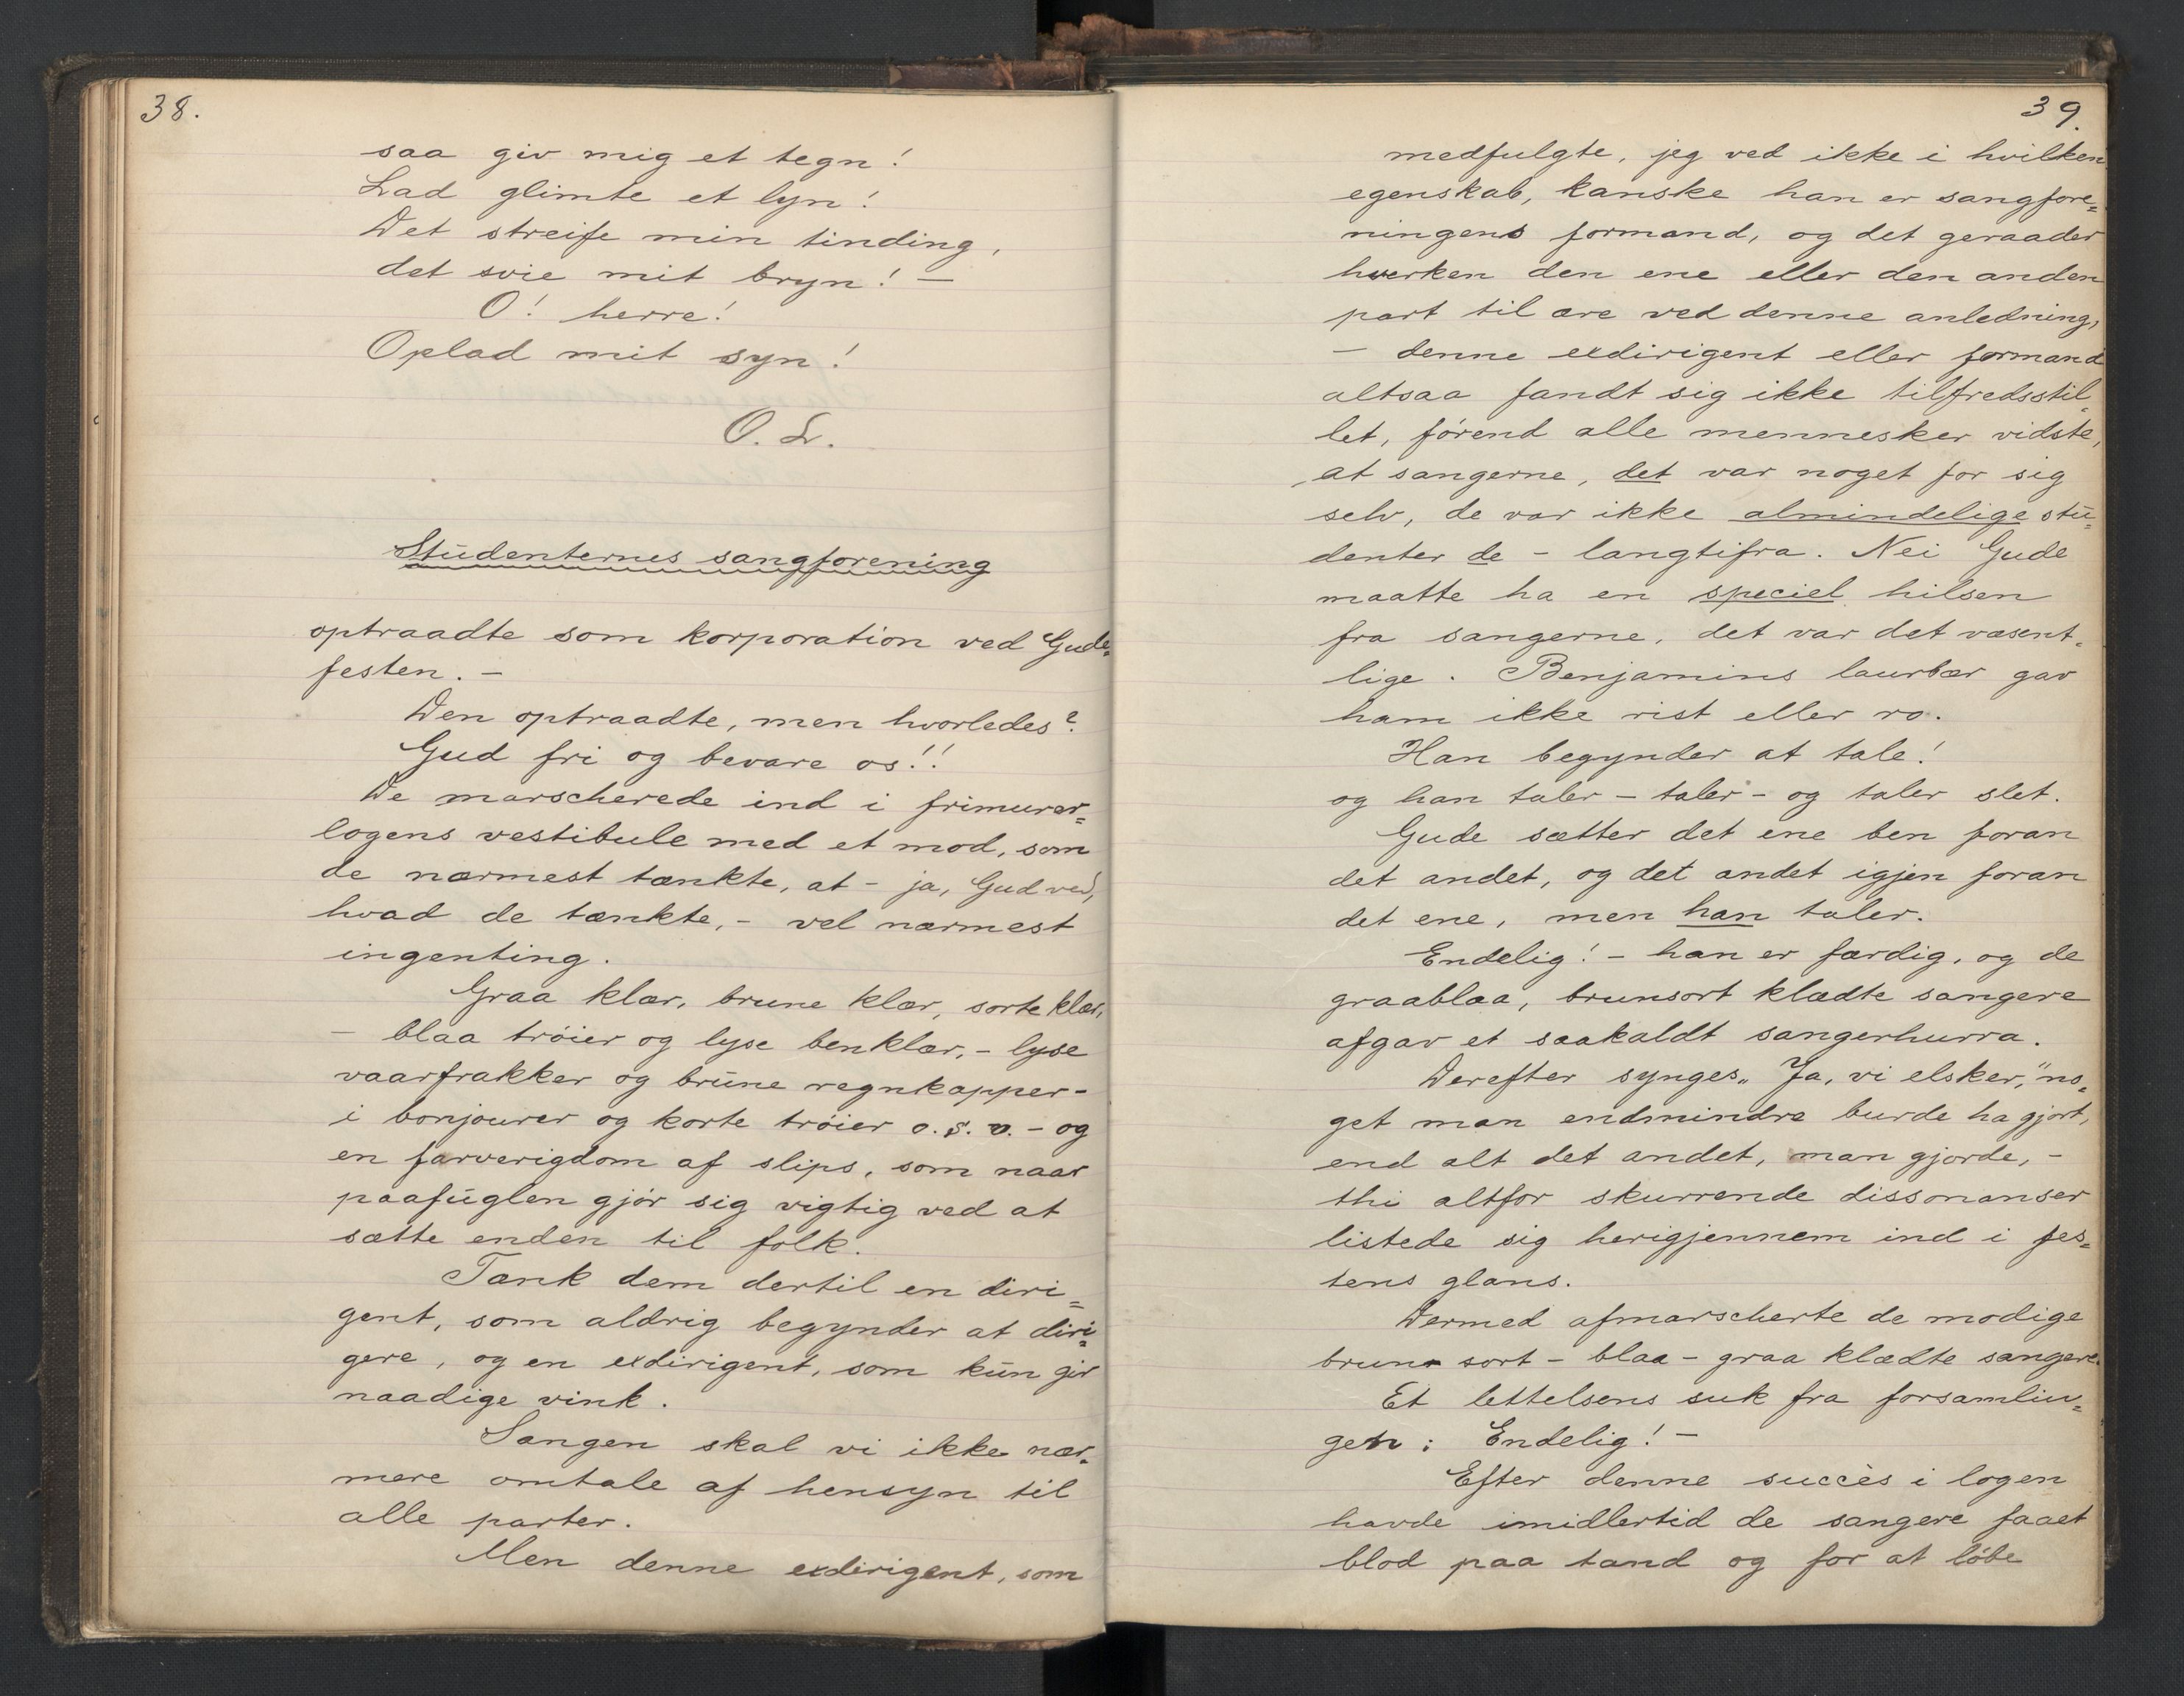 38.
saa giv mig et tegn!
Lad glimte et lyn!
Det streife min tinding,
det svie mit bryn! —
O! herre!
Oplad mit syn!
O. L.
Studenternes sangforening
optraadte som korporation ved Gude=
festen. —
Den optraadte, men hvorledes?
Gud fri og bevare os!!
De marscherede ind i frimurer=
logens vestibule med et mod, som
de nærmest tænkte, at - ja, Gud ved,
hvad de tænkte, - vel nærmest
ingenting.
Graa klær, brune klær, sorte klær,
— blaa trøier og lyse benklær, - lyse
vaarfrakker og brune regnkapper -
i bonjourer og korte trøier o. s. v. - og
en farverigdom af slips, som naar
paafuglen gjør sig vigtig ved at
sætte enden til folk.
Tænk dem dertil en diri=
gent, som aldrig begynder at diri=
gere, og en exdirigent, som kun gir
naadige vink.
Sangen skal vi ikke nær=
mere omtale af hensyn til
alle parter.
Men denne exdirigent, som
39.
medfulgte, jeg ved ikke i hvilken
egenskab, kanske han er sangfore=
ningens formand, og det geraader
hverken den ene eller den anden
part til ære ved denne anledning,
— denne exdirigent eller formand
altsaa fandt sig ikke tilfredsstil=
let, førend alle mennesker vidste,
at sangerne, det var noget for sig
selv, de var ikke almindelige stu=
denter de - langtifra. Nei Gude
maatte ha en speciel hilsen
fra sangerne, det var det væsent=
lige. Benjamins laurbær gav
ham ikke rist eller ro.
Han begynder at tale!
og han taler - taler - og taler slet.
Gude sætter det ene ben foran
det andet, og det andet igjen foran
det ene, men han taler.
Endelig! - han er færdig, og de
graablaa, brunsort klædte sangere
afgav et saakaldt sangerhurra.
Derefter synges „Ja, vi elsker," no=
get man endmindre burde ha gjort,
end alt det andet, man gjorde, -
thi altfor skurrende dissonanser
listede sig herigjennem ind i fes=
tens glans.
Dermed afmarscherte de modige
brun- sort - blaa - graa klædte sangere.
Et lettelsens suk fra forsamlin=
gen: Endelig! —
Efter denne succès i logen
havde imidlertid de sangere faaet
blod paa tand og for at løbe